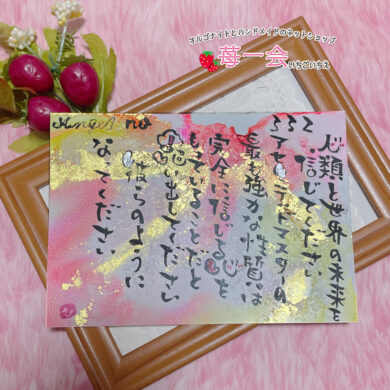 オルゴナイトとハンドメイドのネットショップ
苺一会
いちごいちえ
Angel no
332
人類と世界の未来を
信じてください
アセンデッドマスターの
最も強力な性質は
完全に信じる心を
もっていることだと
思い出してください
らのように
なってください